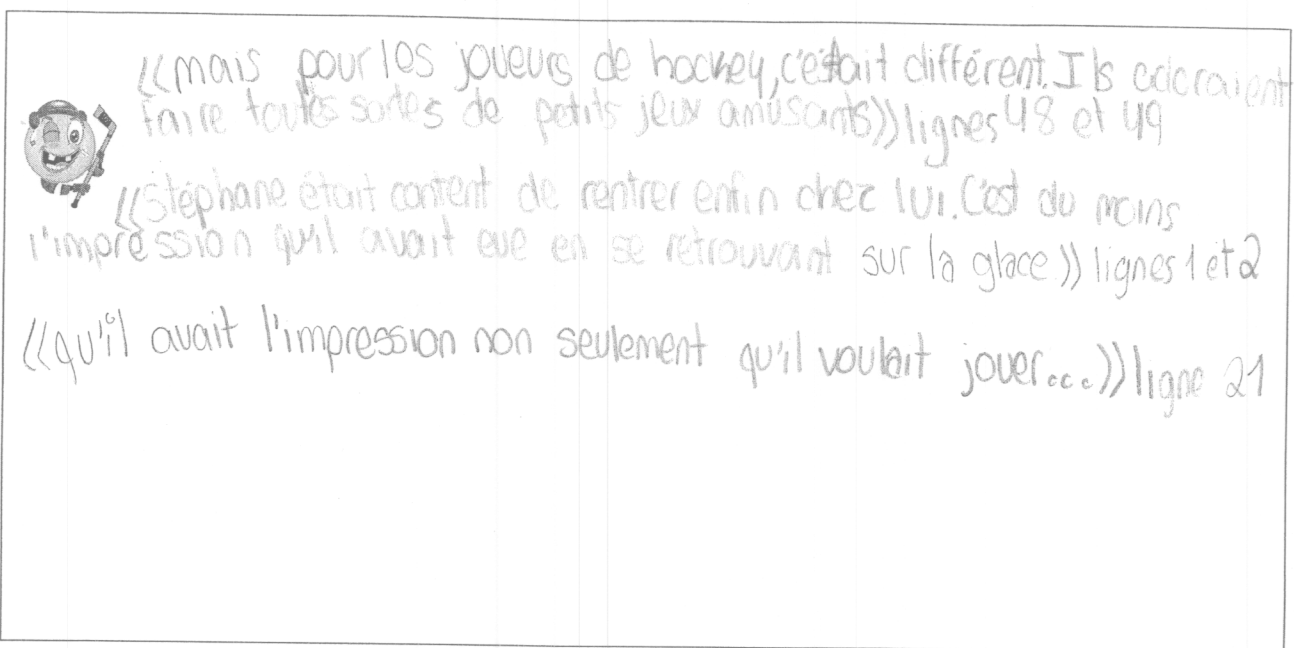 «mais pour les joueurs de hockey, c'était différent. Ils adoraient
faire toutes sortes de petits jeux amusants» lignes 48 et 49
«Stéphane était content de rentrer enfin chez lui. C'est du moins
l'impression qu'il avait eue en se retrouvant sur la glace» lignes 1 et 2
«qu'il avait l'impression non seulement qu'il voulait jouer...» ligne 21